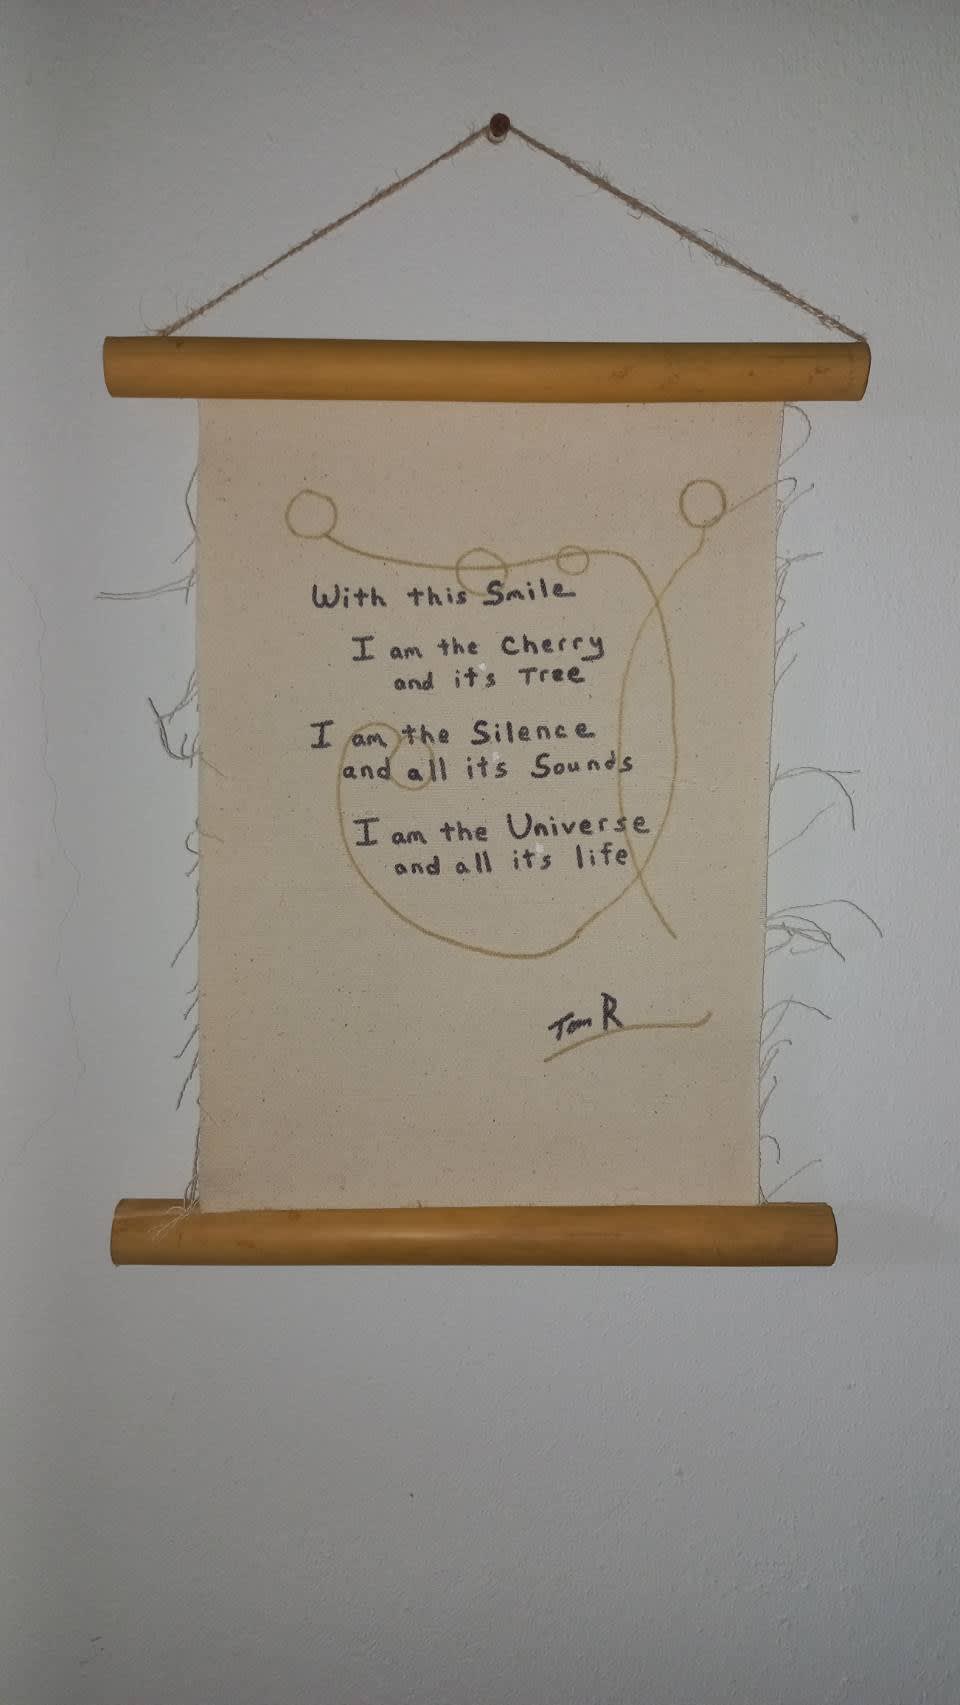 With this Smile
I am the Cherry
and it's Tree
I am the Silence
and all it's Sounds
I am the Universe
and all it's life
Tom R